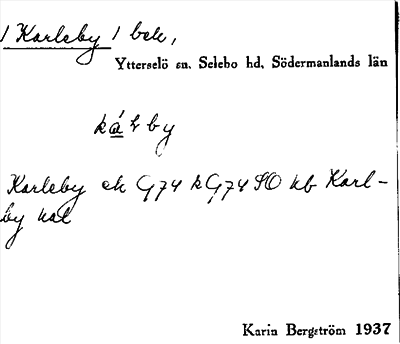 / Karleby / beb.,
Ytterselö sn. Selebo hd. Södermanlands län
ká̲l by
Karleby ek G74 k G74 SO hb Karl-
by kat
Karin Bergström 1937